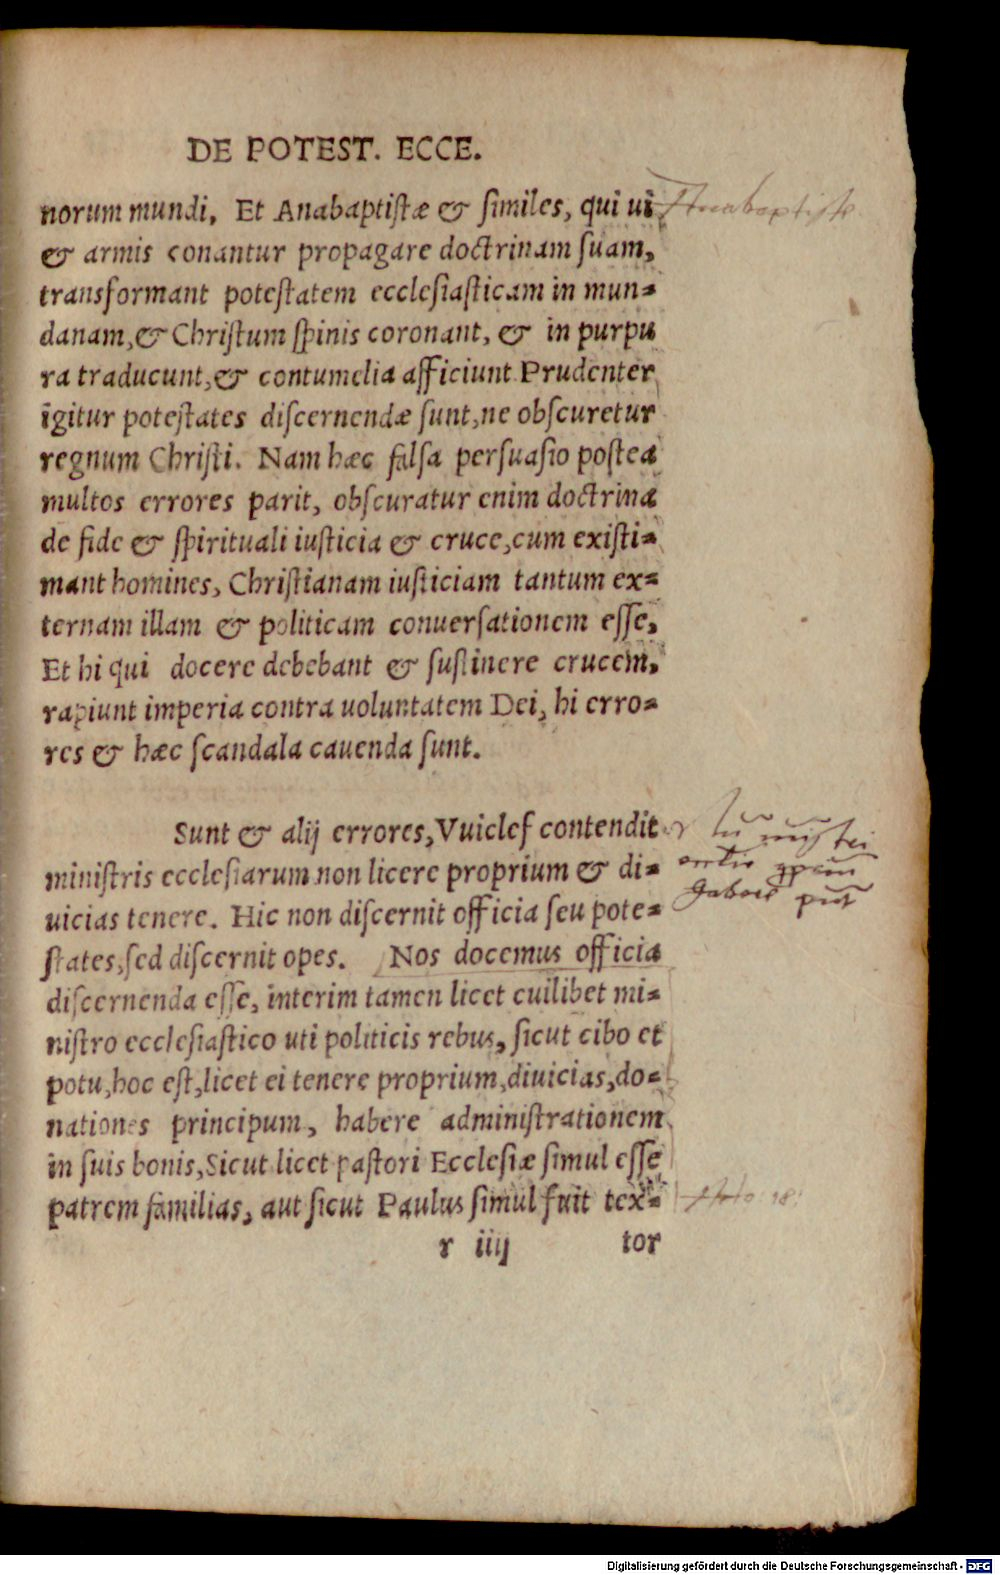 DE POTEST. ECCE.
norum mundi, Et Anabaptistæ & similes, qui ui
& armis conantur propagare doctrinam suam,
transformant potestatem ecclesiasticam in mun=
danam, & Christum spinis coronant, & in purpu
ra traducunt, & contumelia afficiunt Prudenter
igitur potestates discernendæ sunt, ne obscuretur
regnum Christi. Nam hæc falsa persuasio postea
multos errores parit, obscuratur enim doctrina
de fide & spirituali iusticia & cruce, cum existi=
mant homines, Christianam iusticiam tantum ex=
ternam illam & politicam conuersationem esse,
Et hi qui docere debebant & sustinere crucem,
rapiunt imperia contra uoluntatem Dei, hi erro=
res & hæc scandala cauenda sunt.
Sunt & alij errores, Vuiclef contendit
ministris ecclesiarum non licere proprium & di=
uicias tenere. Hic non discernit officia seu pote=
states, sed discernit opes. Nos docemus officia
discernenda esse, interim tamen licet cuilibet mi=
nistro ecclesiastico uti politicis rebus, sicut cibo et
potu, hoc est, licet ei tenere proprium, diuicias, do=
nationes principum, habere administrationem
in suis bonis, Sicut licet pastori Ecclesiæ simul esse
patrem familias, aut sicut Paulus simul fuit tex=
r iiij tor
Anabaptiste
18
Digitalisierung gefördert durch die Deutsche Forschungsgemeinschaft - DFG